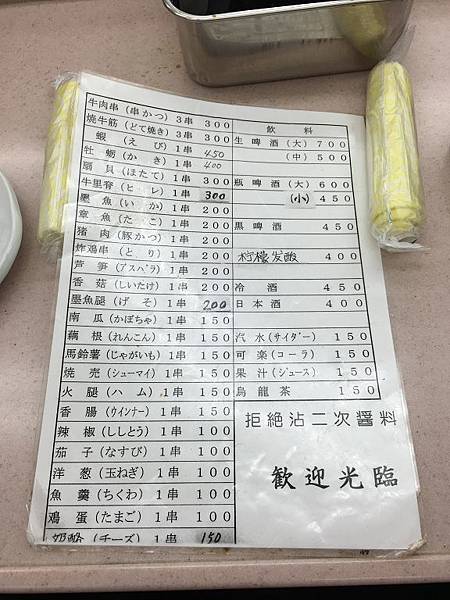 牛肉串(串かつ)3串 300
焼牛筋(どて焼き)3串 300
蝦(えび)1串 450
牡蛎(かき)1串 400
扇貝(ほたて)1串 300
牛里脊(ヒレ)1串 300
墨魚(いか)1串 200
章魚(たこ)1串 200
猪肉(豚かつ)1串 200
炸鶏串(とり)1串 200
芦笋(アスパラ)1串 200
香菇(しいたけ)1串 200
墨魚腿(げそ)1串 200
南瓜(かぼちゃ)1串 150
藕根(れんこん)1串 150
馬鈴薯(じゃがいも)1串 150
焼売(シューマイ)1串 150
火腿(ハム)1串 150
香腸(ウインナー)1串 150
辣椒(ししとう)1串 100
茄子(なすび)1串 100
洋葱(玉ねぎ)1串 100
魚羹(ちくわ)1串 100
鶏蛋(たまご)1串 100
奶酪(チーズ)1串 150
飲料
生啤酒(大)700
(中)500
瓶啤酒(大)600
(小)450
黒啤酒 450
柠檬发酸 400
冷酒 450
日本酒 400
汽水(サイダー)150
可楽(コーラ)150
果汁(ジュース)150
烏龍茶 150
拒絶沾二次醤料
歓迎光臨